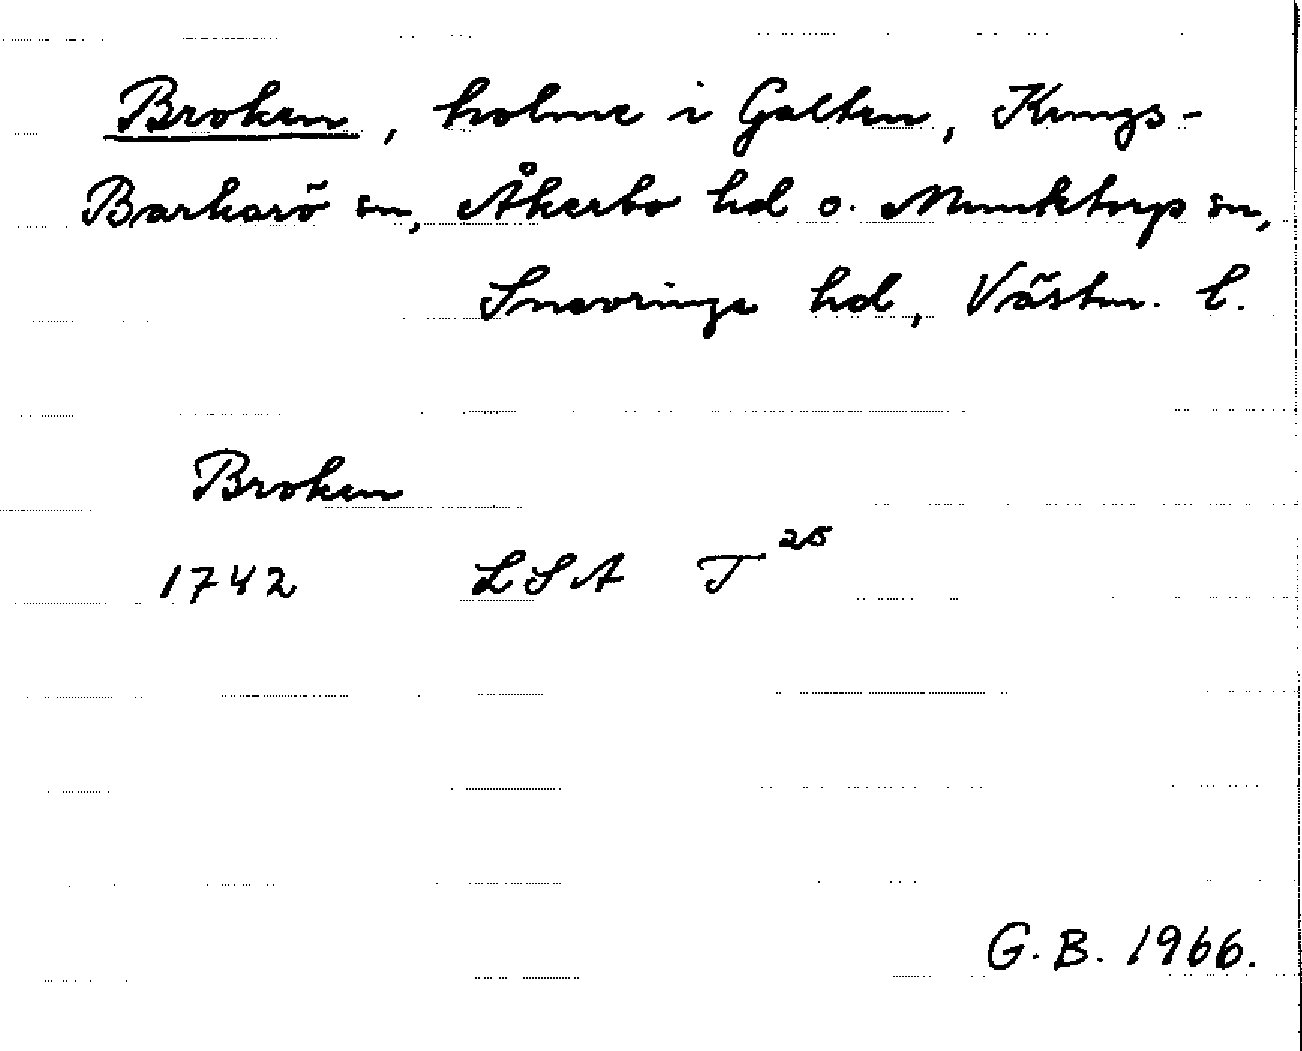 Broken, holme i Galten, Kungs-
Barkarö sn, Åkerbo hd o. Munktorp sn,
Snevringe hd, Västm. l.
Broken
1742 LSA T 25
G. B. 1966.